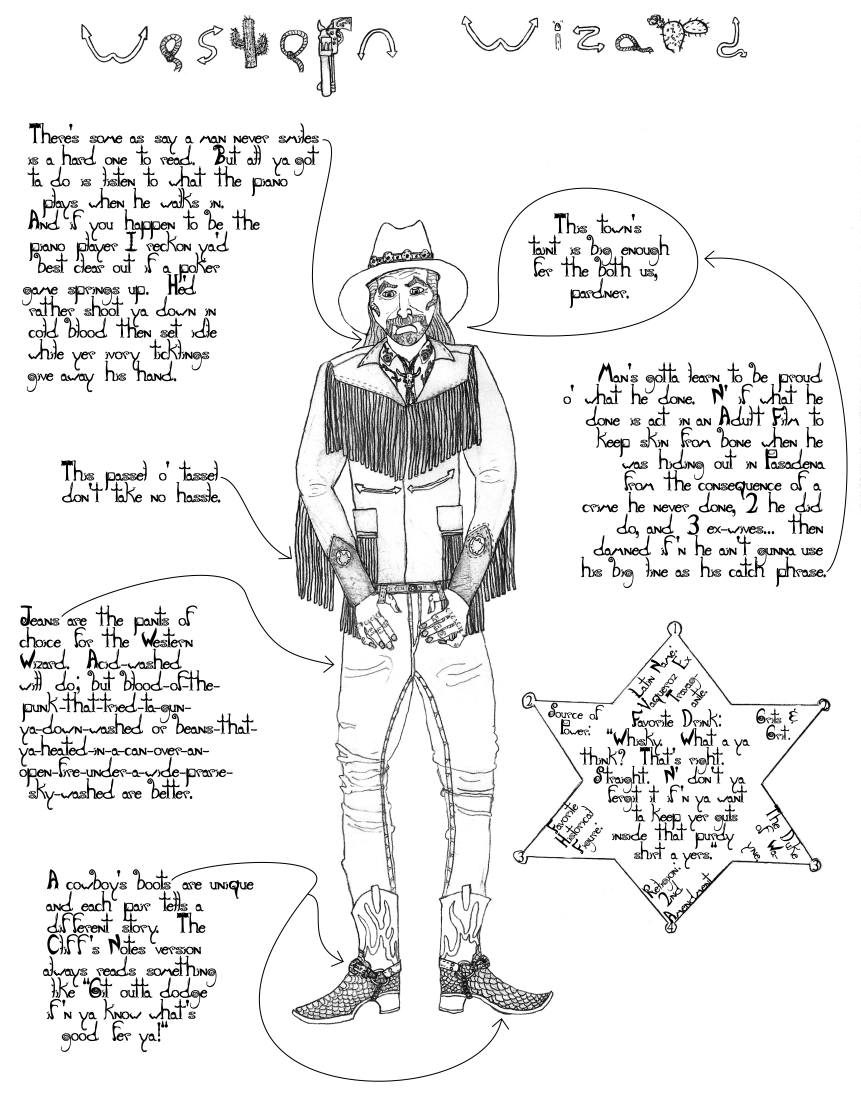 Western Wizard
There's some as say a man never smiles
is a hard one to read. But all ya got
ta do is listen to what the piano
plays when he walks in.
And if you happen to be the
piano player I reckon ya'd
best clear out if a poker
game springs up. He'd
rather shoot ya down in
cold blood then set idle
while yer ivory ticklings
give away his hand.
This town's
taint is big enough
fer the both us,
pardner.
Man's gotta learn to be proud
o' what he done. N' if what he
done is act in an Adult Film to
keep skin from bone when he
was hiding out in Pasadena
from the consequence of a
crime he never done, 2 he did
do, and 3 ex-wives... then
damned if'n he ain't gunna use
his big line as his catch phrase.
This passel o' tassel
don't take no hassle.
Jeans are the pants of
choice for the Western
Wizard. Acid-washed
will do; but blood-of-the-
punk-that-tried-ta-gun-
ya-down-washed or beans-that-
ya-heated-in-a-can-over-an-
open-fire-under-a-wide-prairie-
sky-washed are better.
A cowboy's boots are unique
and each pair tells a
different story. The
Cliff's Notes version
always reads something
like "Git outta dodge
if'n ya know what's
good fer ya!"
1
Latin Name:
Vaqueroz Ex
Travag-
ante
2
Source of
Power:
Grits &
Grit.
2
Favorite Drink:
"Whisky. What a ya
think? That's right.
Straight. N' don't ya
fergit it if'n ya want
ta keep yer guts
inside that purdy
shirt a yers."
3
Favorite
Historical
Figure:
The Duke
3
Religion:
2nd
Amendment
4